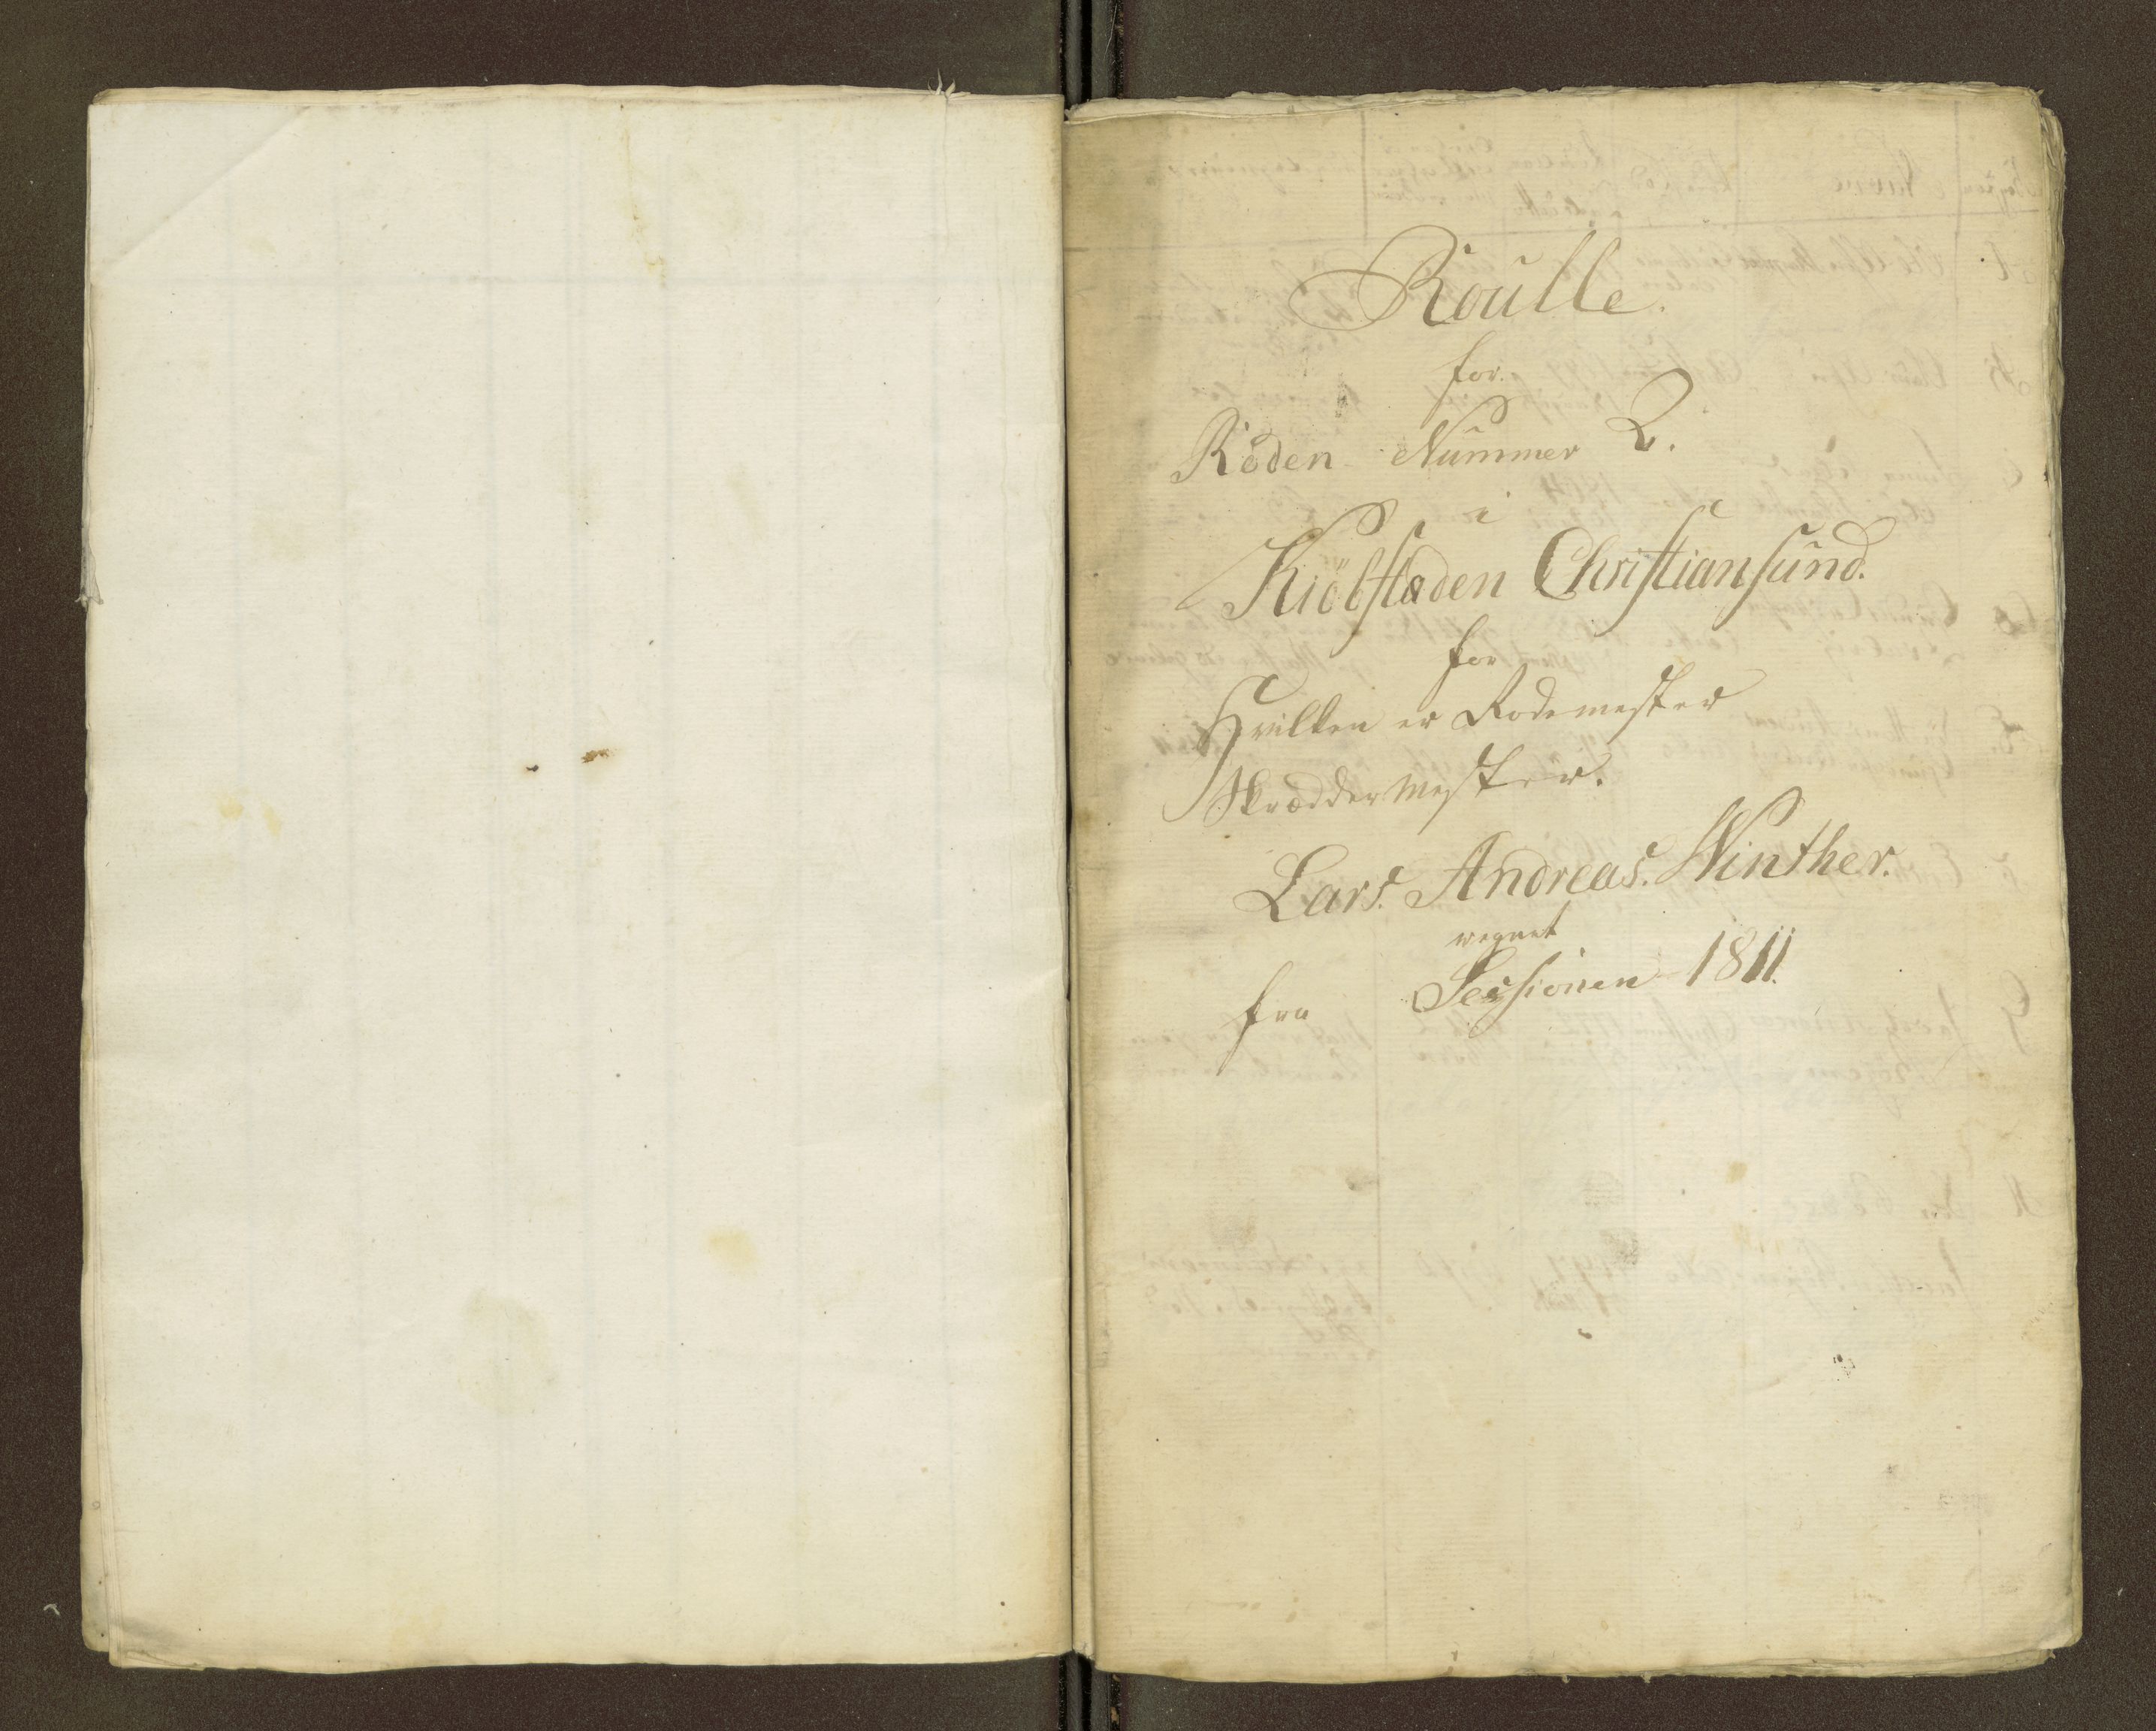 Roulle.
for.
Roden Nummer 2.
i
Kiöbstæden Christiansund.
for
Hvilken er Rodemester
Skræddermester.
Lars. Andreas. Winther.
regnet
fra Sessionen 1811.